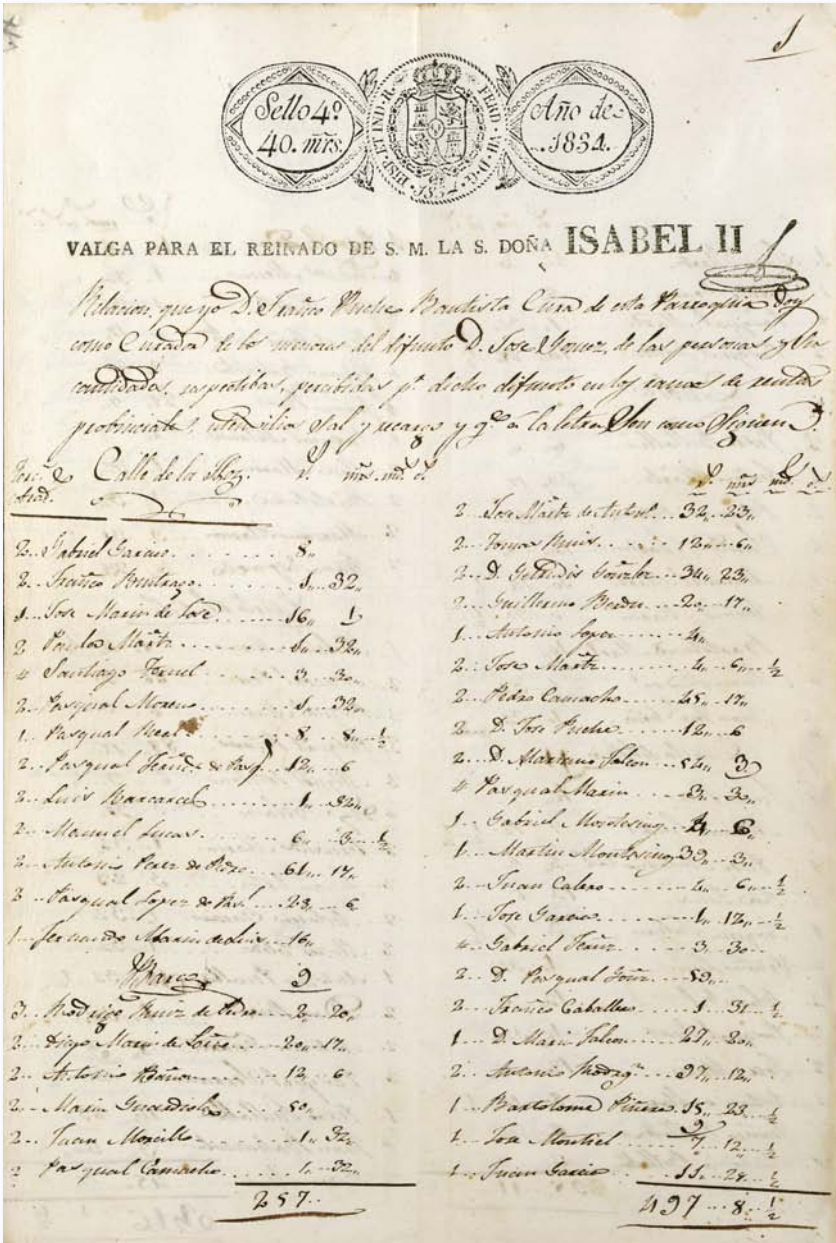 1
Sello 4º
40. mrs.
HISP. ET IND. R. FERD. VII. D. G. 1834
Año de
1834.
VALGA PARA EL REINADO DE S. M. LA S. DOÑA ISABEL II
Relacion, que yo D. Franco Puche Bautista Cura de esta Parroquia doy
como Curador de los menores del difunto D. Jose Gomez, de las personas y las
cantidades, respectibas, percibidas pr. dicho difunto en los ramos de rentas
probinciales, utensilios Sal y recargo y qe. a la letra Son como Siguen
Calle de la Hoz. mrs. md.
2.. Gabriel Garcia. 8,,
2.. Franco Buitrago. 1,, 32,,
1.. Jose Marin de Jose. 16,, 1
2 Martz. 1,, 32,,
4 Santiago Teruel 3,, 30,,
2.. Pasqual Moreno 1,, 32,,
1.. Pasqual Real 8,, 8,, ½
2.. Pasqual de Pasql. 12,, 6
2.. Luis 1,, 32,,
2.. Manuel Lucas. 6,, 3 ½
2.. Antonio Perez de Pedro. 61,, 17,,
3.. Pasqual Lopez de 23,, 6
1.. Fernando Marin de Luis 16,,
Barco 9
3.. Rodrigo de Pedro 2,, 20,,
2.. Diego Marin de 20,, 17,,
2.. Antonio 12,, 6
2.. Maria 50,,
2.. Juan Morcillo 1,, 32,,
2 Pasqual Camacho 1,, 32,,
257..
mrs md.
2.. Jose Martz de Antol. 32,, 23,,
2.. Tomas Ruis 12,, 6,,
2.. D. Getrudis Gonzalez 34,, 23,,
2.. Guillermo Berdu 20,, 17,,
1.. Antonio Lopez 4,,
2.. Jose Martz 4,, 6,, ½
2.. Pedro Camacho 45,, 17,,
2.. D. Jose Puche 12,, 6
2.. D. Mariano Falcon 54,, 3
4 Pasqual Marin 3,, 30,,
1.. Gabriel Montesinog 4 6
1.. Martin Montesinog 39,, 3,,
2.. Juan Calero 4,, 6,, ½
1.. Jose Garcia 1,, 12,, ½
4.. Gabriel 3,, 30
2.. D. Pasqual 59,,
2.. Franco Caballero 1 31 ½
1.. D. Maria Falcon 27,, 20,,
2.. Antonio Rodrigz. 37,, 12,,
1.. Bartolome Piñera 15,, 23 ½
1.. Jose Montiel 7,, 12,, ½
1.. Juan Garcia 11,, 24,, ½
497 8 ½